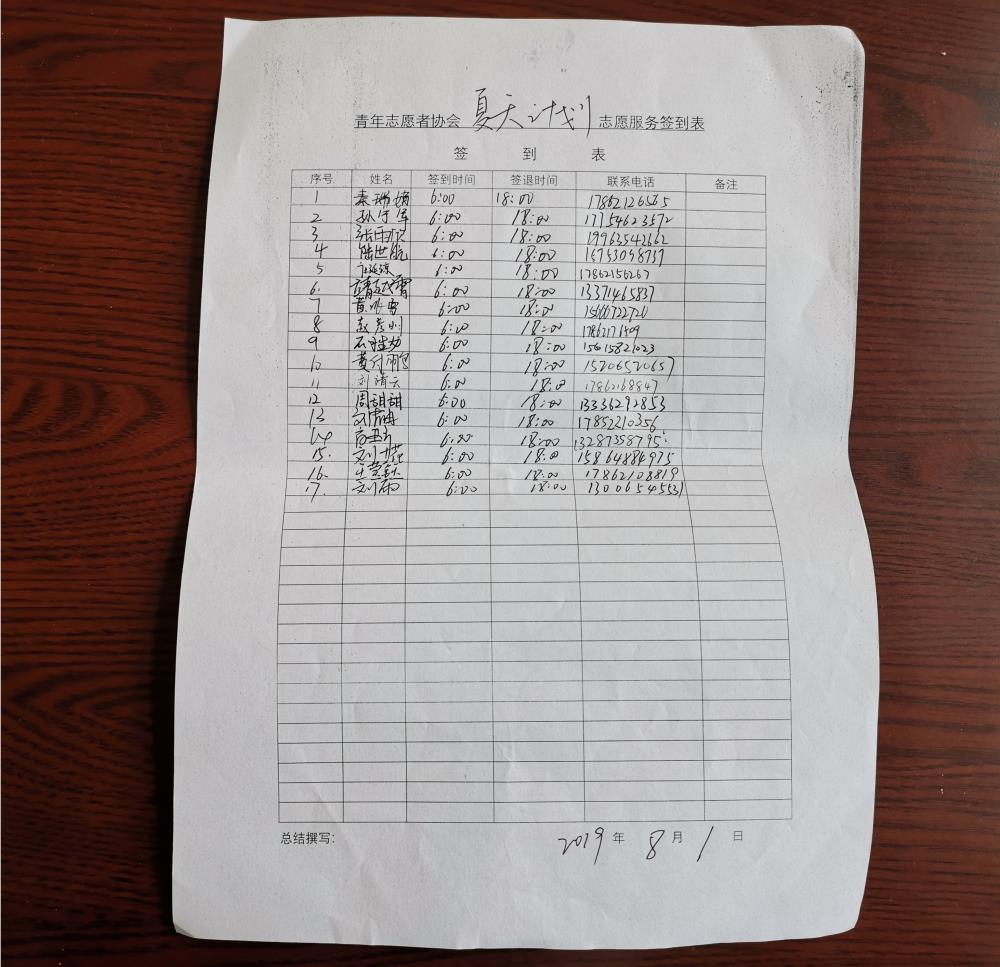 青年志愿者协会 夏天计划 志愿服务签到表
签 到 表
序号 姓名 签到时间 签退时间 联系电话 备注
1 秦瑞靖 6:00 18:00 17862126565
2 孙守军 6:00 18:00 17754623572
3 6:00 18:00 19963542662
4 陆世航 6:00 18:00 15753098737
5 6:00 18:00 17862156267
6. 6:00 18:00 13371465837
7 黄冰雪 6:00 18:00 15660722720
8 赵彦川 6:00 18:00
9 6:00 18:00 15615821023
10 6:00 18:00 15206520657
11 刘清云 6:00 18:00 17862168847
12 周甜甜 6:00 18:00 13336292853
13 6:00 18:00 17852210356
14 6:00 18:00 13287358795
15. 6:00 18:00 15864884975
16. 6:00 18:00 17862108819
17. 刘雨 6:00 18:00 13006545531
总结撰写: 2019 年 8 月 1 日